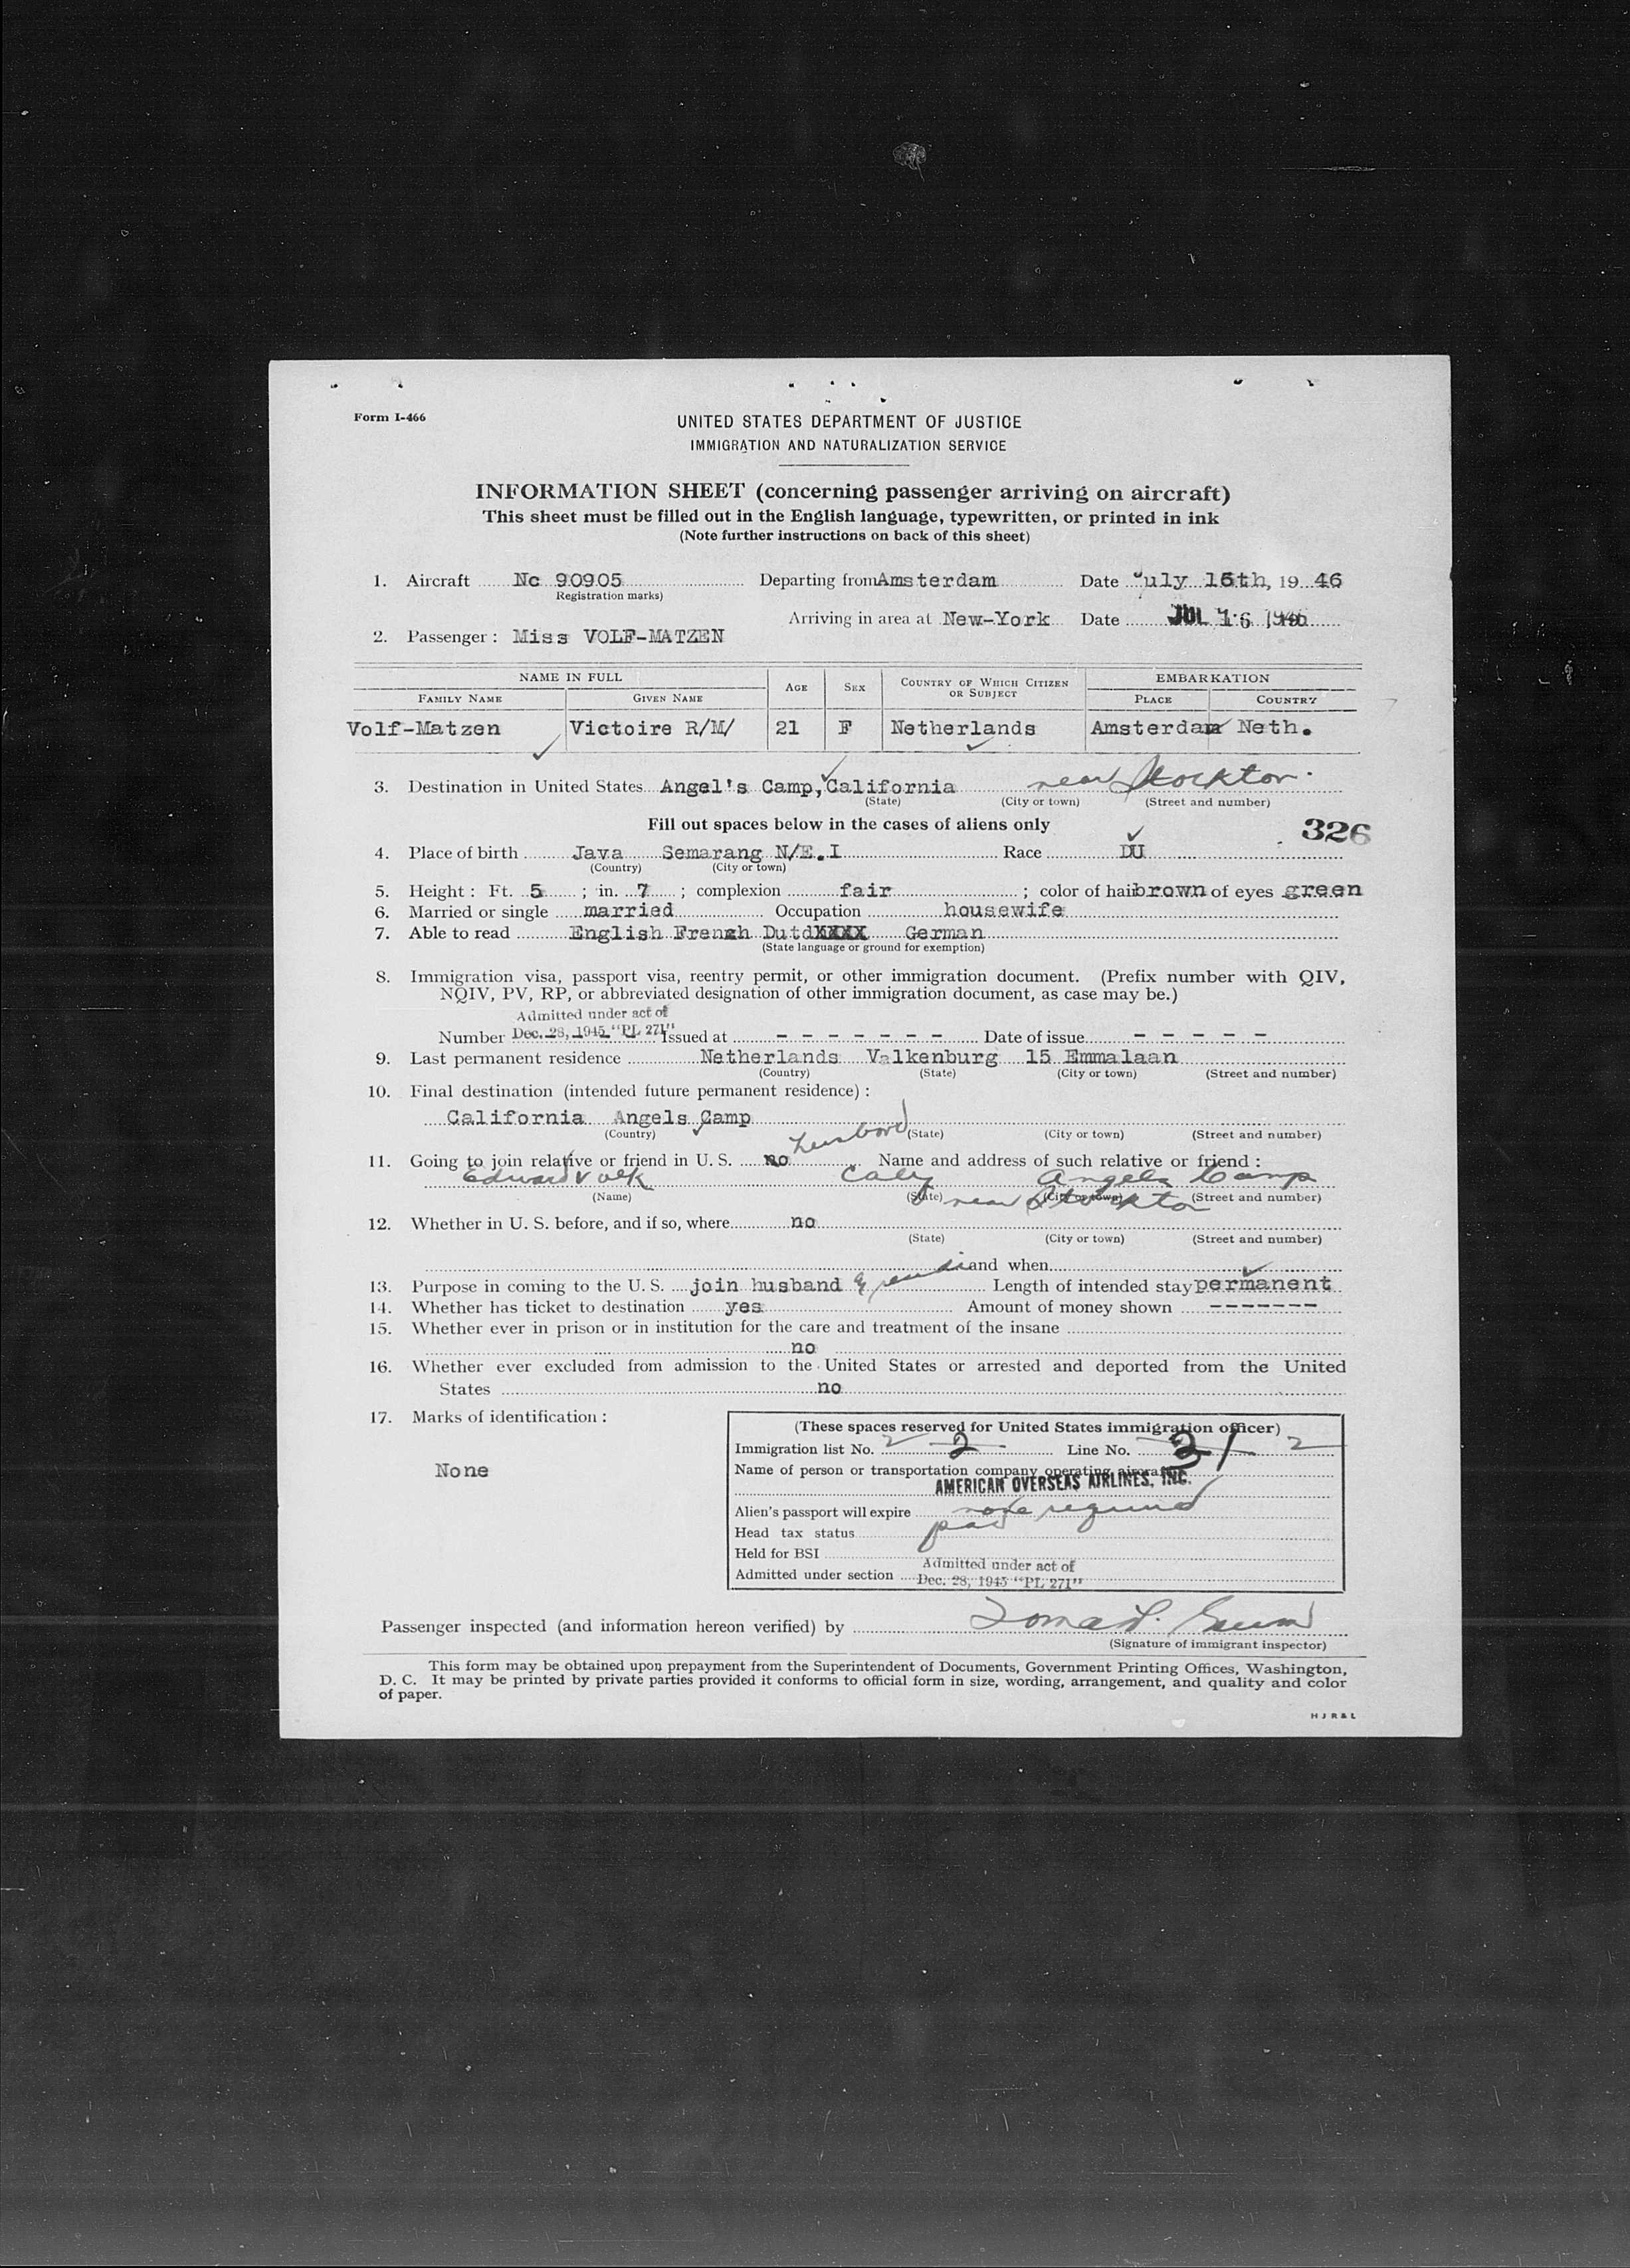 Form I-466
UNITED STATES DEPARTMENT OF JUSTICE
IMMIGRATION AND NATURALIZATION SERVICE
INFORMATION SHEET (concerning passenger arriving on aircraft)
This sheet must be filled out in the English language, typewritten, or printed in ink
(Note further instructions on back of this sheet)
1. Aircraft Nc 90905 Departing from Amsterdam Date July 15th, 19 46
(Registration marks)
Arriving in area at New-York Date JUL 16 1946
2. Passenger : Miss VOLF-MATZEN
NAME IN FULL AGE SEX COUNTRY OF WHICH CITIZEN OR SUBJECT EMBARKATION
FAMILY NAME GIVEN NAME PLACE COUNTRY
Volf-Matzen Victoire R/M/ 21 F Netherlands Amsterdam Neth.
3. Destination in United States Angel's Camp, California near Stockton.
(State) (City or town) (Street and number)
Fill out spaces below in the cases of aliens only
326
4. Place of birth Java Semarang N/E.I Race DU
(Country) (City or town)
5. Height : Ft. 5 ; in. 7 ; complexion fair ; color of hair brown of eyes green
6. Married or single married Occupation housewife
7. Able to read English French Dutd XXXX German
(State language or ground for exemption)
8. Immigration visa, passport visa, reentry permit, or other immigration document. (Prefix number with QIV,
NQIV, PV, RP, or abbreviated designation of other immigration document, as case may be.)
Admitted under act of
Number Dec. 28, 1945 "PL 271" Issued at - - - - - - - Date of issue - - - - -
9. Last permanent residence Netherlands Valkenburg 15 Emmalaan
(Country) (State) (City or town) (Street and number)
10. Final destination (intended future permanent residence) :
California Angels Camp
(Country) (State) (City or town) (Street and number)
husband
11. Going to join relative or friend in U. S. no Name and address of such relative or friend :
Edward Volk Angels Camp
(Name) (State) (City or town) (Street and number)
near Stockton
12. Whether in U. S. before, and if so, where no
(State) (City or town) (Street and number)
and when
13. Purpose in coming to the U. S. join husband & Length of intended stay permanent
14. Whether has ticket to destination yes Amount of money shown -------
15. Whether ever in prison or in institution for the care and treatment of the insane
no
16. Whether ever excluded from admission to the United States or arrested and deported from the United
States no
17. Marks of identification :
None
(These spaces reserved for United States immigration officer)
Immigration list No. 2 Line No. 31 2
Name of person or transportation company operating aircraft
AMERICAN OVERSEAS AIRLINES, INC.
Alien's passport will expire none required
Head tax status paid
Held for BSI
Admitted under act of
Admitted under section Dec. 28, 1945 "PL 271"
Passenger inspected (and information hereon verified) by
(Signature of immigrant inspector)
This form may be obtained upon prepayment from the Superintendent of Documents, Government Printing Offices, Washington,
D. C. It may be printed by private parties provided it conforms to official form in size, wording, arrangement, and quality and color
of paper.
H J R & L